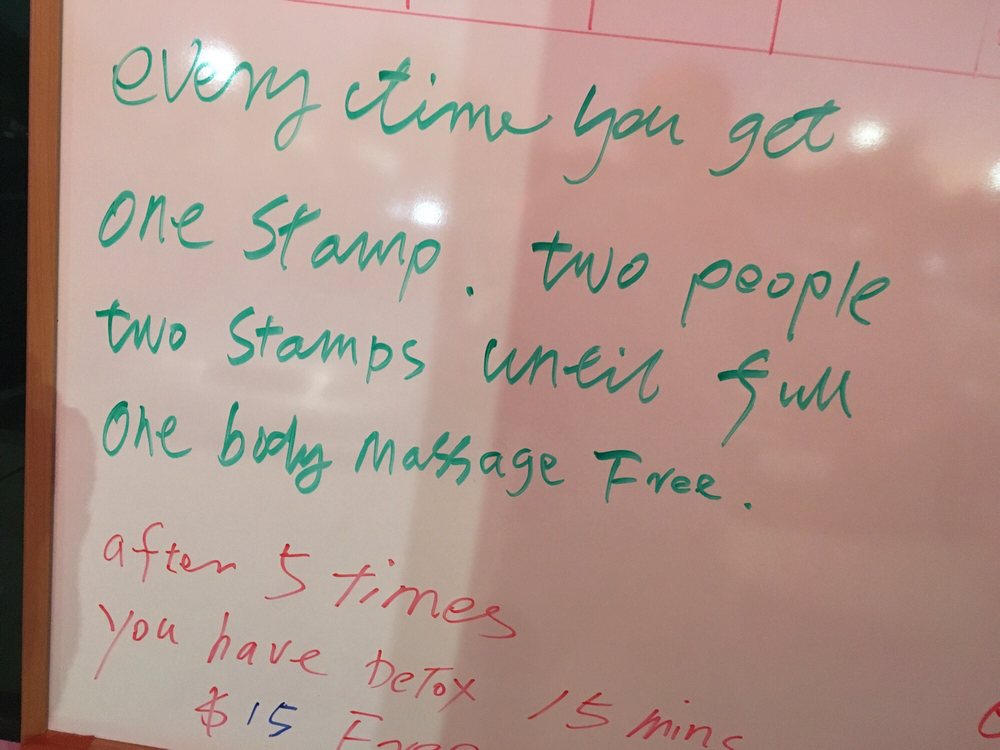 every time you get
one stamp. two people
two stamps until full
one body massage Free.
after 5 times
you have Detox 15 mins
$15 Free